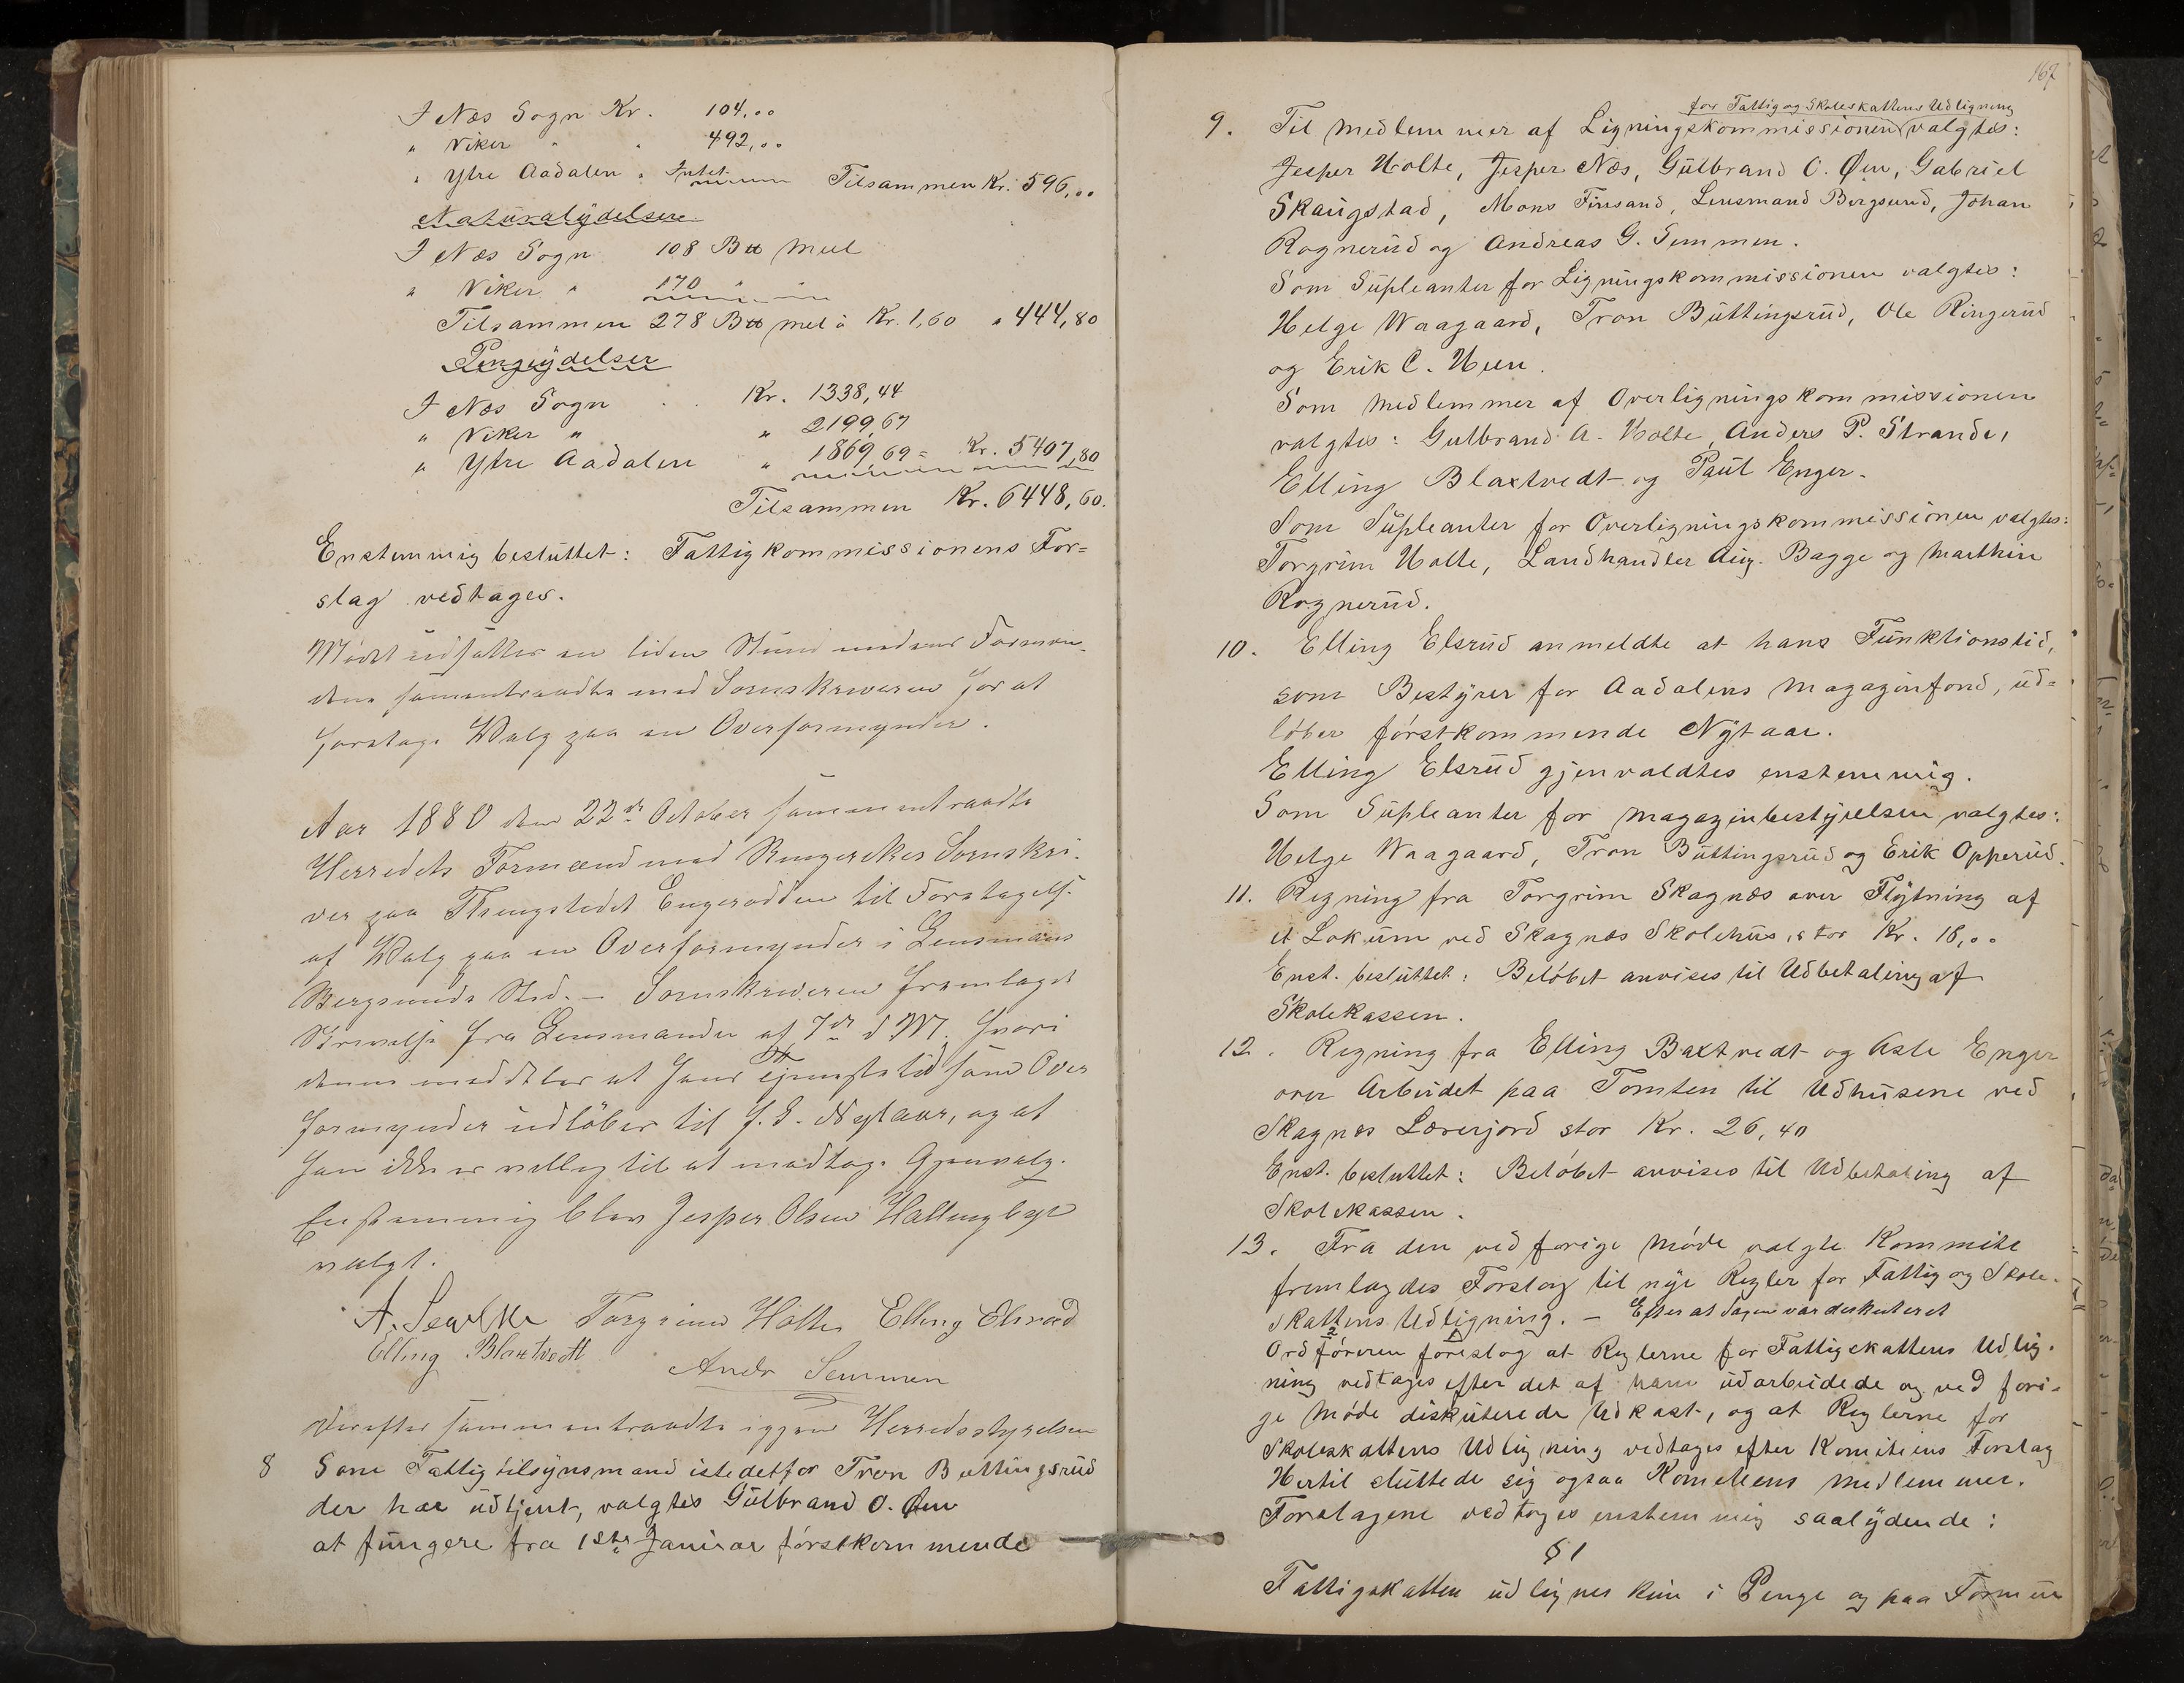 I Næs Sogn Kr. 104,00
" Viker " " 492,00
" Ytre Aadalen " Intet Tilsammen Kr. 596,00
Naturalydelsene
I Næs Sogn 108 B℔ Meel
" Viker " 170 " "
Tilsammen 278 B℔ mel à Kr. 1,60 " 444,80
Pengeydelser
I Næs Sogn . . Kr. 1338,44
" Viker " " 2199,67
" Ytre Aadalen " 1869,69 = Kr. 5407,80
Tilsammen Kr. 6448,60.
Enstemmig besluttet: Fattigkommissionens For=
slag vedtages.
Mødet udsattes en liden Stund medens Formæn-
dene sammentraadte med Sorenskriveren for at
foretage Valg paa en Overformynder.
Aar 1880 den 22de October sammentraadte
Herredets Formænd med Ringerikes Sorenskri-
ver paa Thingstedet Engerodden til Foretagelse
af Valg paa en Overformynder i Lensmann
Bergsunds Sted. – Sorenskriveren fremlagde
Skrivelse fra Lensmanden af 7de d. M. hvori
denne meddeler at hans Tjenestetid som Over
formynder udløber til f. Nytaar, og at
han ikke er villig til at modtage Gjenvalg.
Enstemmig blev Jesper Olsen Hallingby
valgt.
A. Torgrim Holte Elling Elsrud
Elling Blaxtvedt Andr Semmen
Derefter sammentraadte igjen Herredsstyrelsen
8 Som Fattigtilsynsmand istedetfor Tron Buttingsrud
der har udtjent, valgtes Gulbrand O. Øen
at fungere fra 1ste Januar førstkommende
167
for Fattig og Skoleskattens Udligning
9. Til Medlemmer af Ligningskommissionen valgtes:
Jesper Holte, Jesper Næs, Gulbrand O. Øen, Gabriel
Skaugstad, Mons Finsand, Lensmand Bergsund, Johan
Rognerud og Andreas G. Semmen.
Som Supleanter for Ligningskommissionen valgtes:
Helge Waagaard, Tron Buttingsrud, Ole Ringerud
og Erik C. Heen.
Som Medlemmer af Overligningskommissionen
valgtes: Gulbrand A. Holte, Anders P. Strande,
Elling Blaxtvedt og Paul Enger.
Som Supleanter for Overligningskommissionen valgtes:
Torgrim Holte, Landhandler Aug. Bagge og Marthin
Rognerud.
10. Elling Elsrud anmeldte at hans Funktionstid,
som Bestyrer for Aadalens Magazinfond, ud=
løber førstkommende Nytaar.
Elling Elsrud gjenvaldtes enstemmig.
Som Supleanter for Magazinbestyrelsen valgtes:
Helge Waagaard, Tron Buttingsrud og Erik Opperud.
11. Regning fra Torgrim Skagnæs over Flytning af
et Lokum ved Skagnæs Skolehus, stor Kr. 18,00
Enst. besluttet: Beløbet anvises til Udbetaling af
Skolekassen.
12. Regning fra Elling Baxtvedt og Asle Enger
over Arbeidet paa Tomten til Udhusene ved
Skagnæs Lærerjord stor Kr. 26,40
Enst. besluttet: Beløbet anvises til Udbetaling af
Skolekassen.
13. Fra den ved forige Møde valgte Kommite
fremlagdes Forslag til nye Regler for Fattig og Skole-
skattens Udligning. – Efter at Sagen var deskuteret
Ordføreren foreslog at Reglerne for Fattigskattens Udlig-
ning vedtages efter det af ham udarbeidede og ved fori-
ge Møde diskuterede Udkast, og at Reglerne for
Skoleskattens Udligning vedtages efter Komiteens Forslag
Hertil sluttede sig ogsaa Komiteens Medlemmer.
Forslagene vedtoges enstemmig saalydende:
§ 1
Fattigskatten udlignes kun i Penge og paa Formue